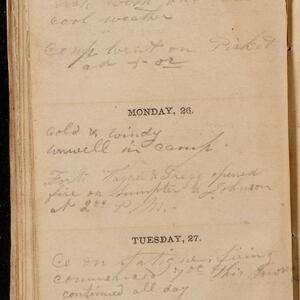 cool weather
Comp went on Picket
MONDAY, 26.
cold & windy
unwell in camp.
Forts Wagner & Gregg opened
fire on Sumpter & Johnson
At 2 P.M.
TUESDAY, 27.
Co on fatigue; firing
commenced
continued all day